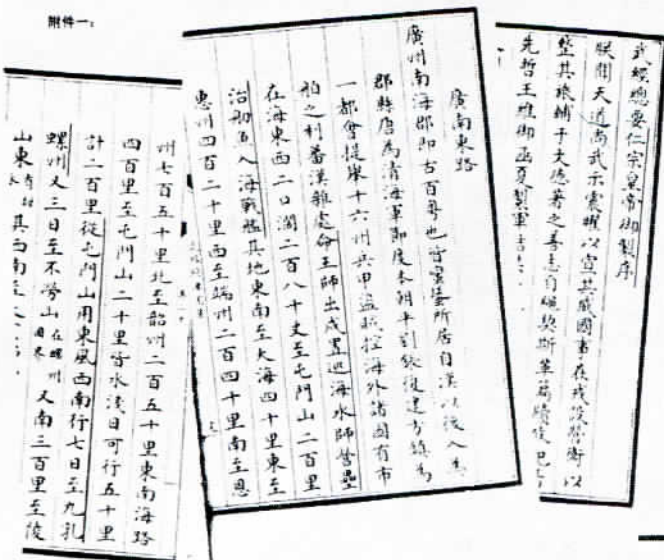 附件一：
武經總要仁宗皇帝御製序
朕聞天道尚武示震曜以宣其威國事在戎設營衛以
整其旅輔于文德著之善志自
先哲王雖御函夏製軍
廣南東路
廣州南海郡即古百粵也皆蠻蜑所居自漢以後入為
郡縣唐為清海軍節度本朝平劉鋹復建方鎮為
一都會提舉十六州兵甲盜賊控海外諸國有市
舶之利蕃漢雜處命王師出戍置巡海水師營壘
在海東西二口闊二百八十丈至屯門山二百里
治舠魚入海戰艦其地東南至大海四十里東至
惠州四百二十里西至端州二百四十里南至恩
州七百五十里北至韶州二百五十里東南海路
四百里至屯門山二十里皆水淺日可行五十里
計二百里從屯門山用東風西南行七日至九乳
螺州又三日至不勞山在環州國界又南三百里至陵
山東有甜水其西南至